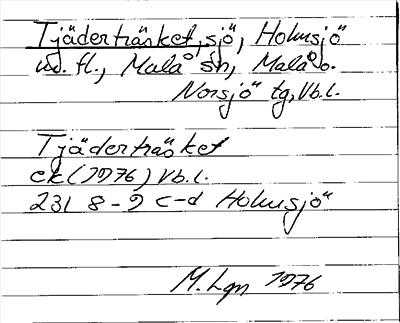 Tjäderträsket, sjö, Holmsjö
nv. fl., Malå sn, Malå o.
Norsjö tg, Vb.l.
Tjäderträsket
ek (1976) Vb.l.
231 8-9 c-d Holmsjö
M. Lgn 1976